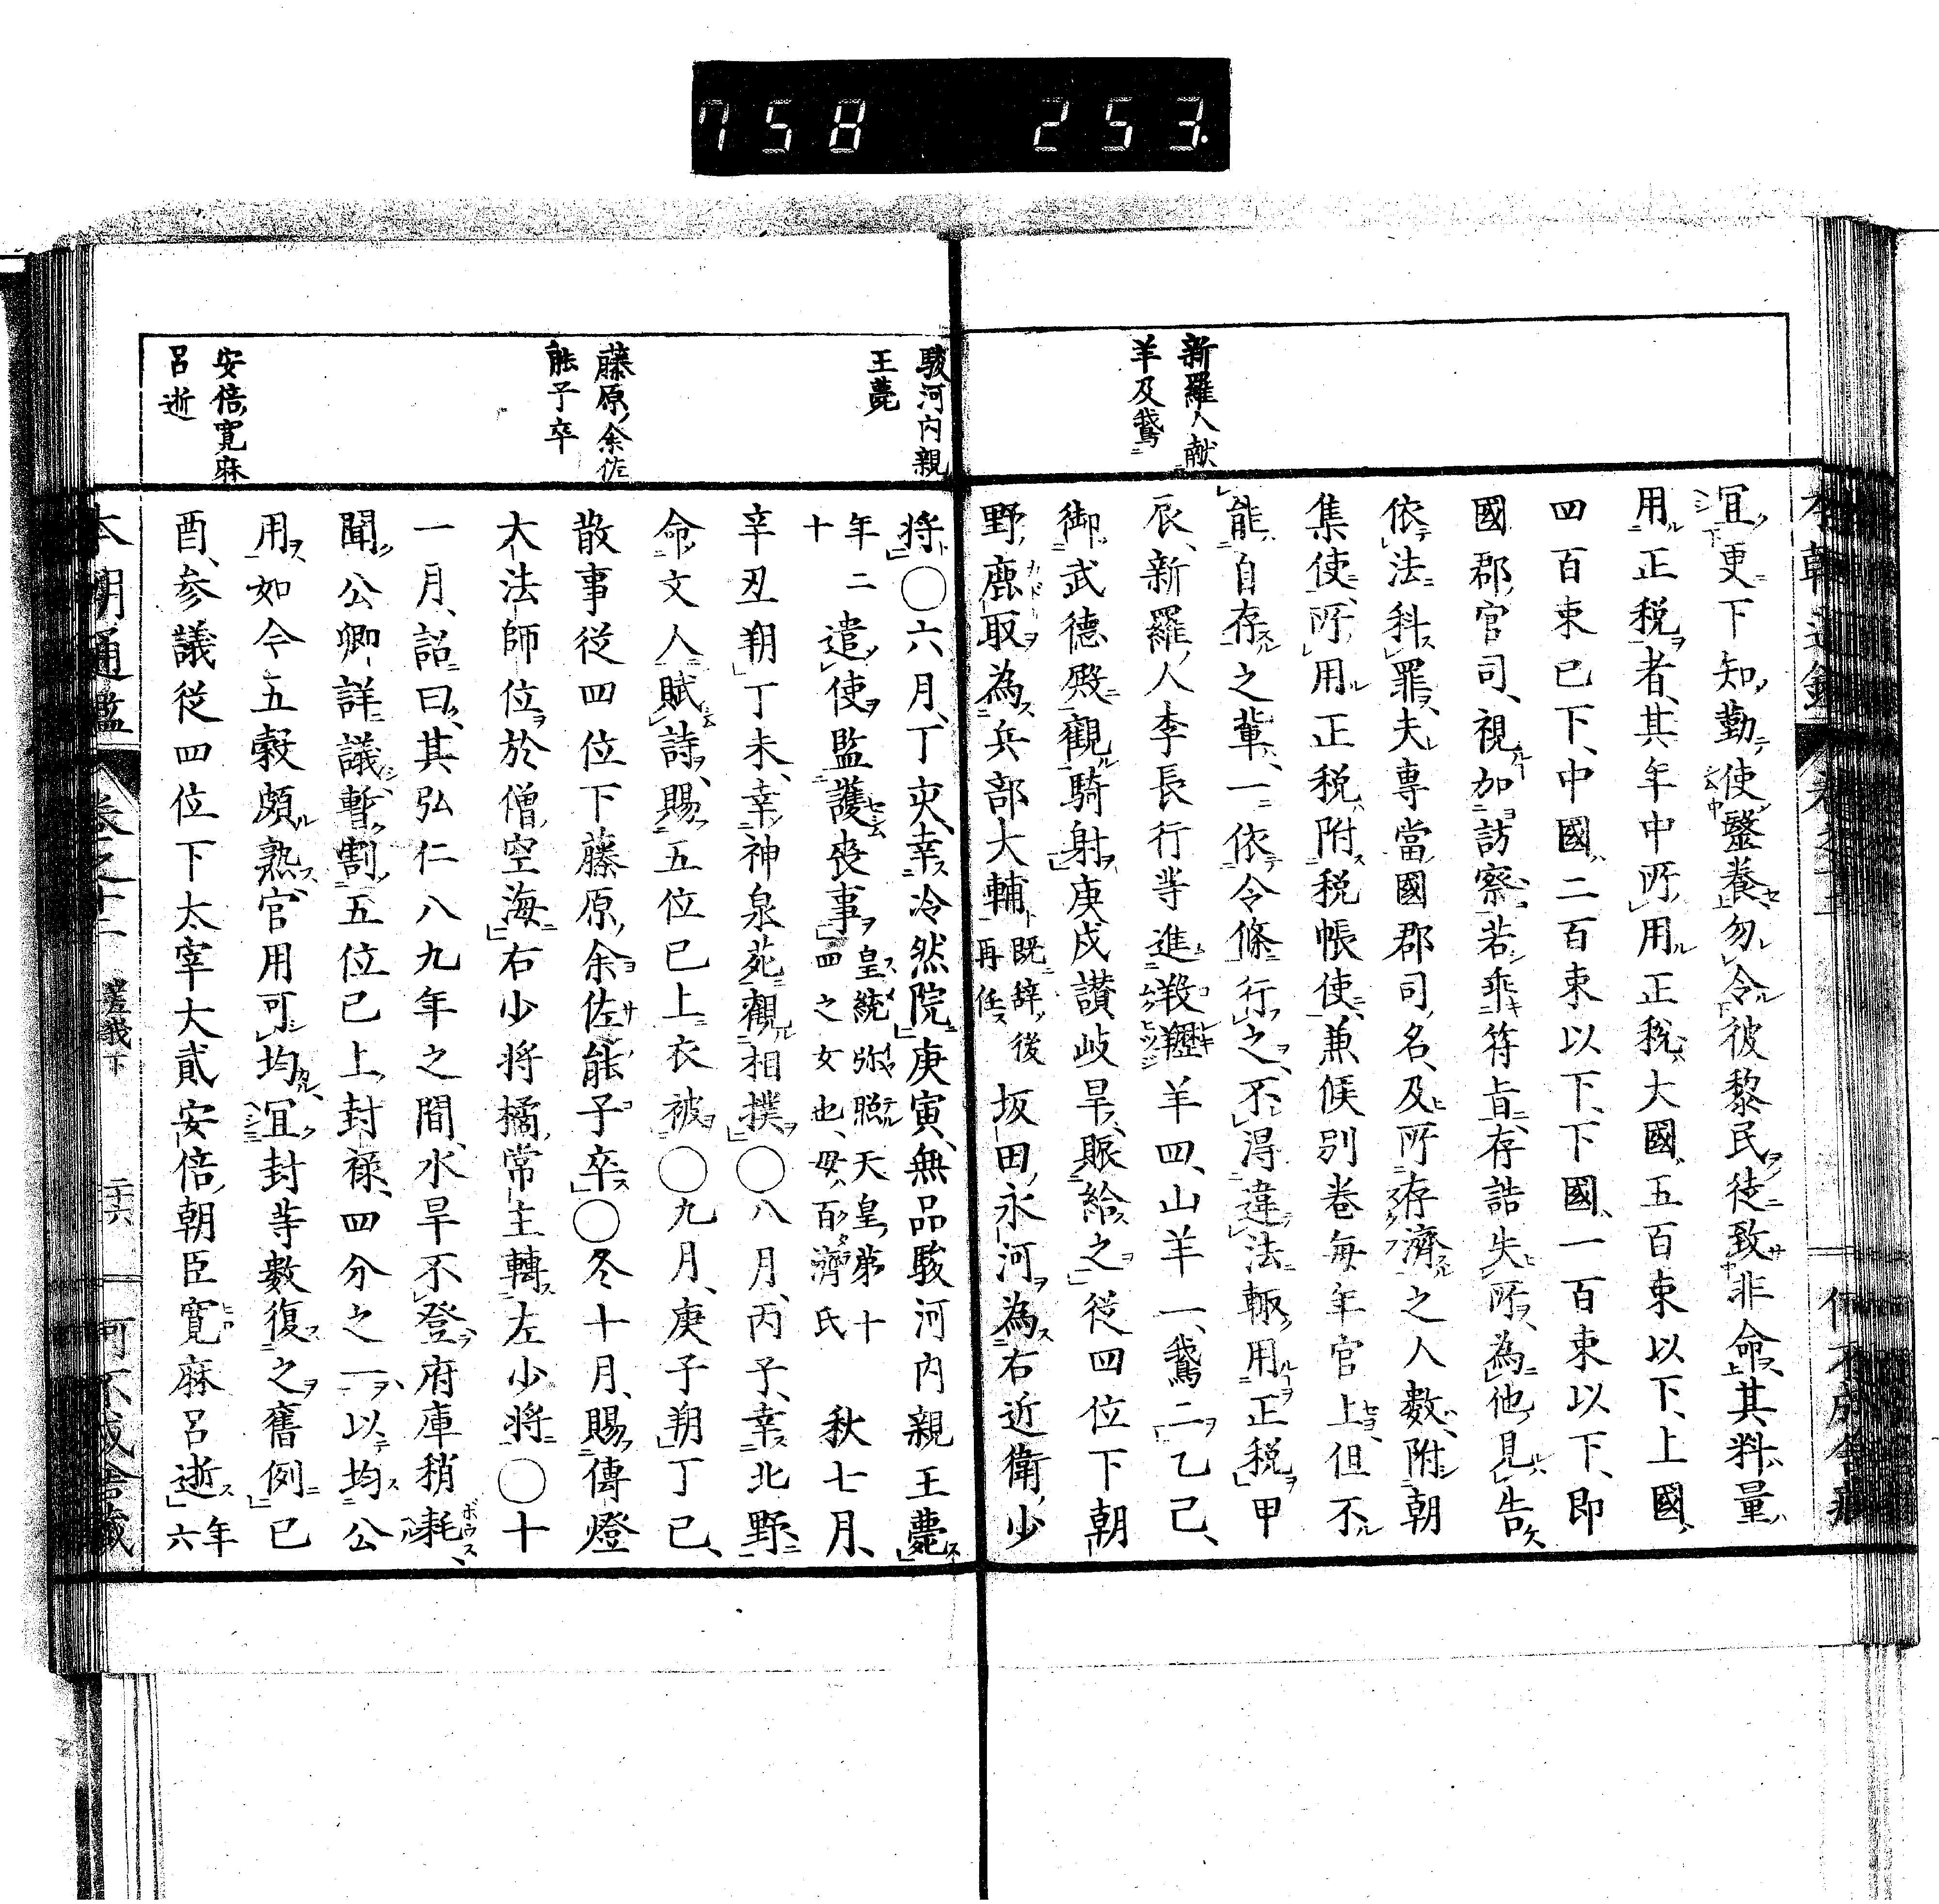 758 253.
新羅人献
羊及鵞
宜更下知勤使鑒養勿令彼黎民徒致非命其料量
用正税者其年中所用正税大國五百束以下上國
四百束已下中國二百束以下下國一百束以下即
國郡官司視加訪察若乖符旨存誥失所為他見告
依法科罪夫専當國郡司名及所存濟之人數附朝
集使所用正税附税帳使兼候別巻毎年官上但不
能自存之輩一依令條行之不得違法輙用正税甲
辰新羅人李長行等進羖䍽羊四山羊一鵞二乙己
御武德殿觀騎射庚戌讃岐旱賑給之従四位下朝
野鹿取為兵部大輔既辞後再任坂田永河為右近衛少
駿河内親
王薨
藤原余佐
能子卒
安倍寛麻
呂逝
将○六月丁亥幸冷然院庚寅無品駿河内親王薨
年二十遣使監護喪事皇統弥照天皇第十四之女也母百濟氏秋七月
辛丑朔丁未幸神泉苑觀相撲○八月丙子幸北野
命文人賦詩賜五位已上衣被○九月庚子朔丁已
散事従四位下藤原余佐能子卒○冬十月賜傳燈
大法師位於僧空海右少将橘常主轉左少将○十
一月詔曰其弘仁八九年之間水旱不登府庫稍耗
聞公卿詳議暫割五位已上封禄四分之一以均公
用如今五穀頗熟官用可均宜封等數復之舊例己
酉参議従四位下太宰大貳安倍朝臣寛麻呂逝年六
本朝通鑑 卷之十二 嵯峨下 二十六